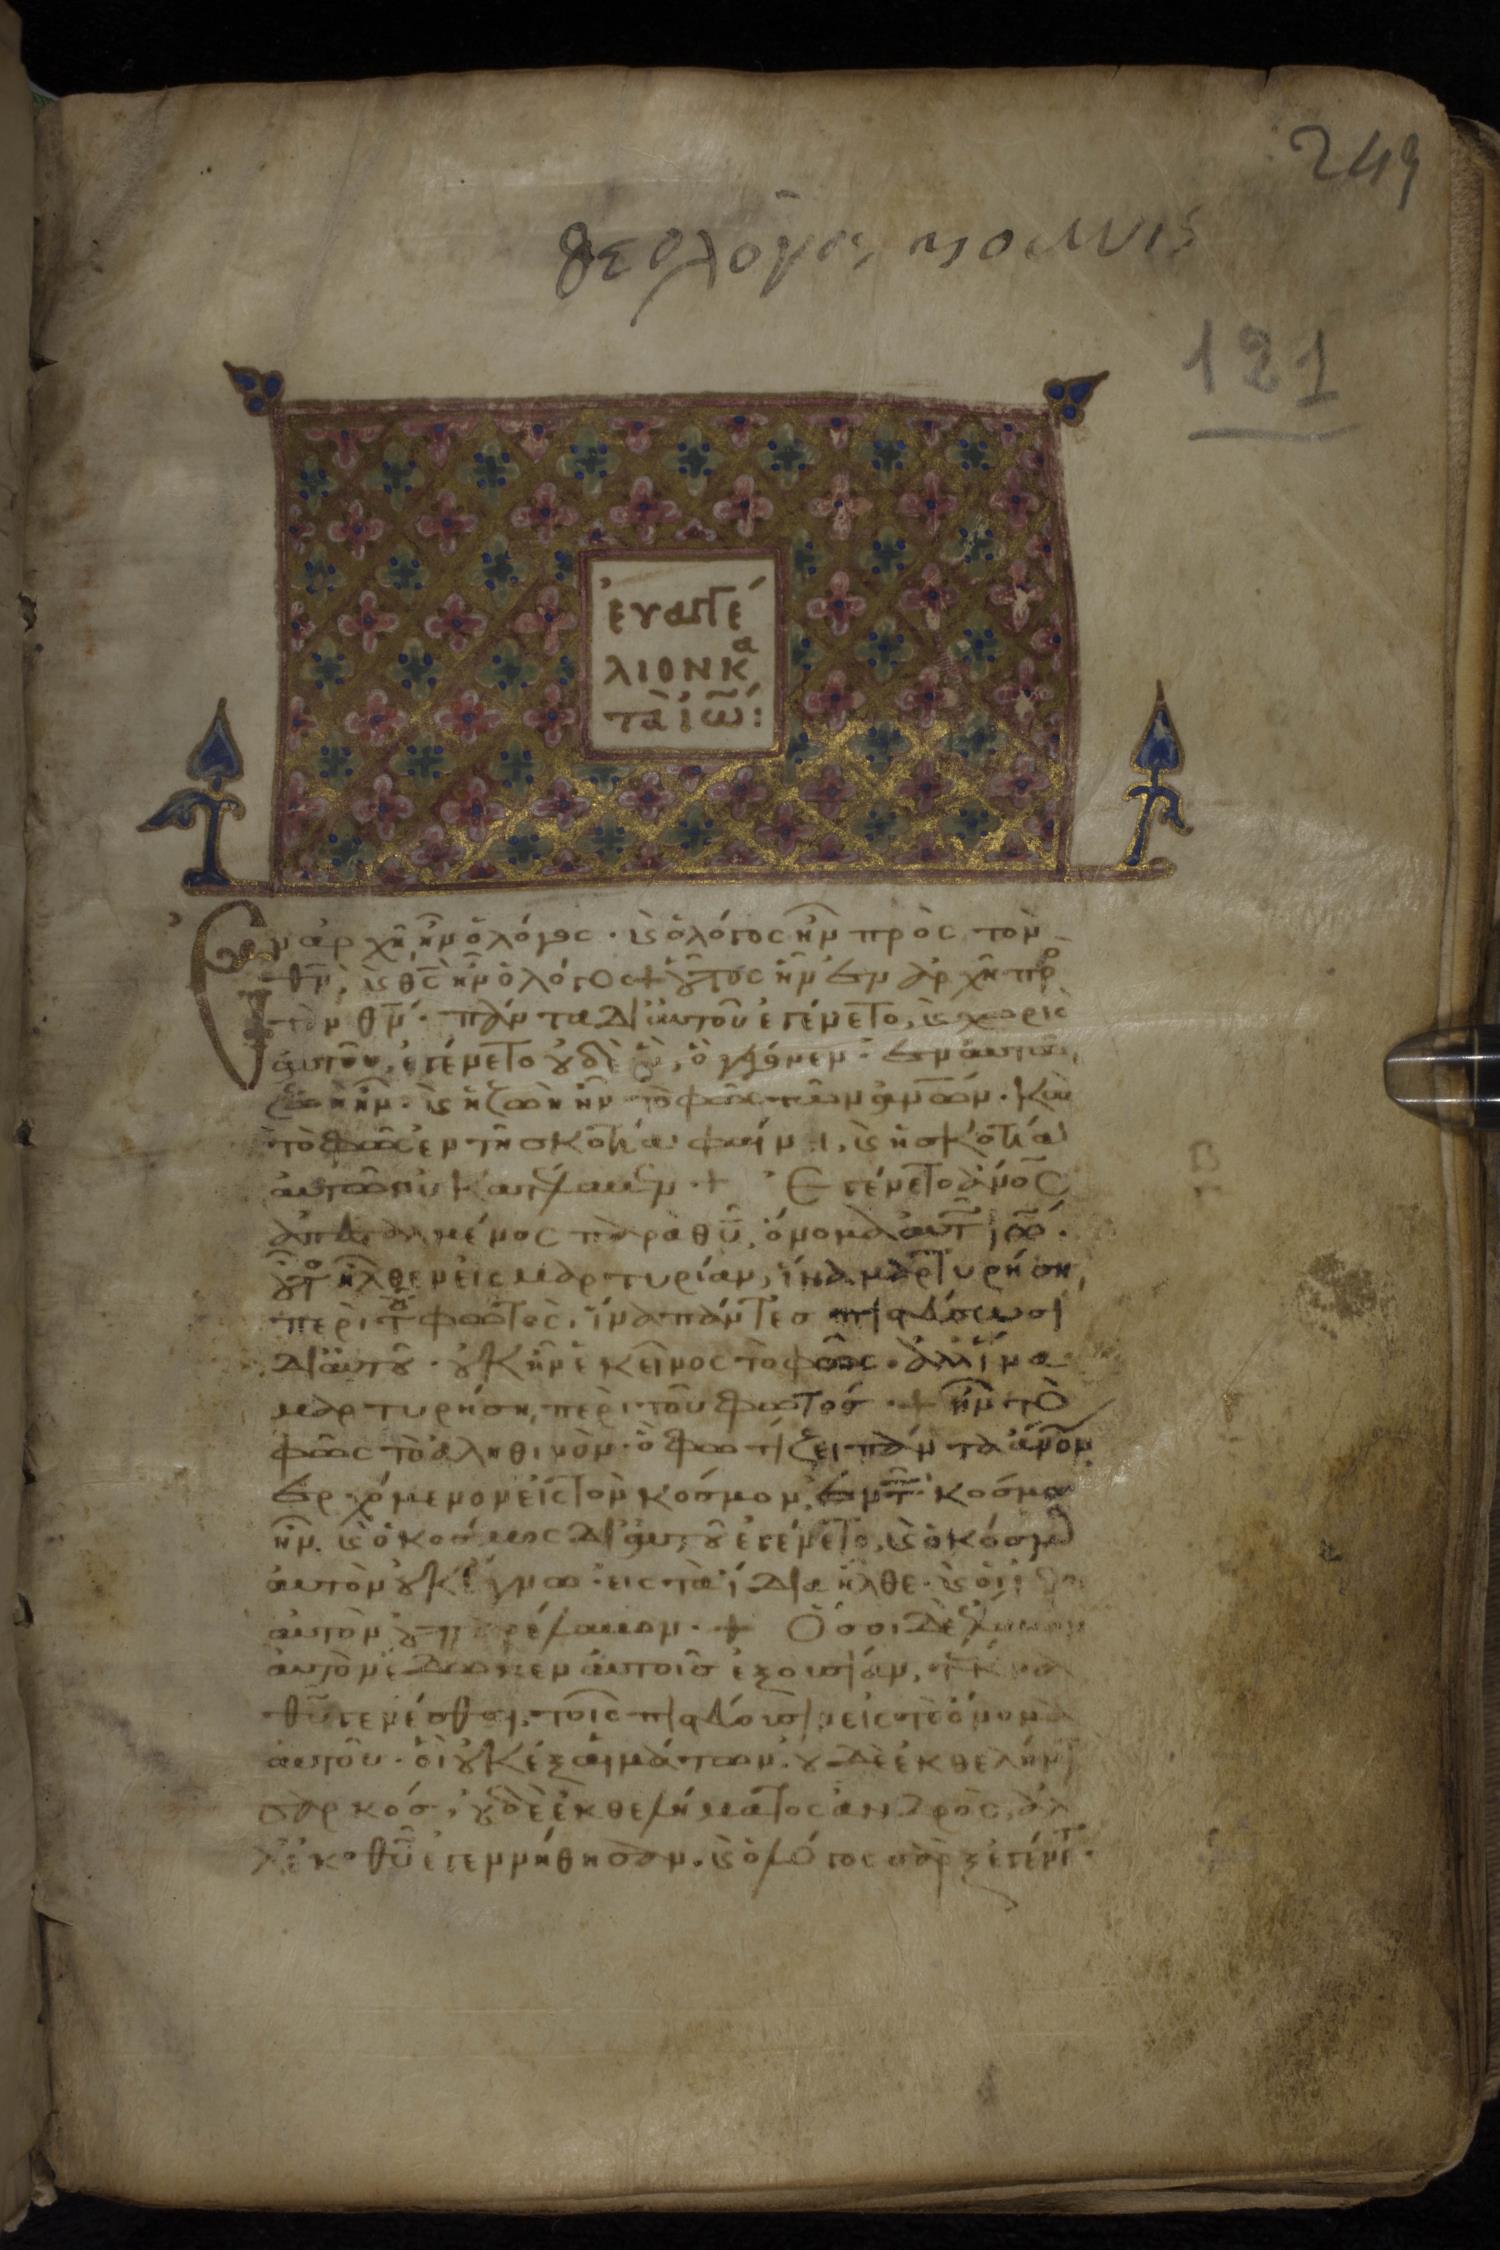 249
121
ἐυαγγέ
λιον κα
τὰ ἰῶ:
Ἐν ἀρχῆ ἦν ὁ λόγος· ϗ ὁ λόγος ἦν πρὸς τὸν
θν̅, ϗ θς̅ ἦν ὁ λόγος + οὗτος ἦν ἐν ἀρχῆ πρὸ
τὸν θν̅· πάντα δι' αυτοῦ ἐγένετο, ϗ χωρὶς
ἀυτοῦ, ἐγένετο οὐδὲ ὃ γέγονεν· ἐν αυτῶ
ζωὴ ἦν· ϗ ἡ ζωὴ ἦν τὸ φῶς τῶν ἀνων· καὶ
τὸ φῶς ἐν τῆ σκοτία φαίνει, ϗ ἡ σκοτία
αυτὸ οὐ κατέλαβεν· + Ἐγένετο ἄνος
ἀπεσταλμένος παρὰ θυ̅, ὄνομα ἀυτ ἰω̅·
οὗτο ἦλθεν εἰς μαρτυρίαν, ἵνα μαρτυρήση,
περὶ τοῦ φωτὸς, ἵνα πάντες πιστεύσωσι
δι' ἀυτοῦ· οὐκ ἦν ἐκεῖνος τὸ φῶς· ἀλλ' ἵνα
μαρτυρήση, περὶ τοῦ φωτός· + ἦν τὸ
φῶς τὸ ἀληθινὸν· ὃ φωτίζει πάντα ἄνον
ἐρχόμενον εἰς τὸν κόσμον, ἐν τ κόσμω
ἦν, ϗ ὁ κόσμος δι' αυτοῦ ἐγένετο, ϗ ὁ κόσμο
ἀυτὸν οὐκ ἔγνω· εις τὰ ἴδια ἦλθε· ϗ οἱ ἴδιοι
αυτὸν οὐ παρέλαβον· + Ὅσοι δὲ ἔλαβον
ἀυτὸν ἔδωκεν ἀυτοῖς ἐξουσίαν, τέκνα
θυ̅ γενέσθαι, τοῖς πιστεύουσιν εἰς τὸ ὄνομα
ἀυτοῦ· οἳ οὐκ ἐξ αἱμάτων· οὐδὲ ἐκ θελήμ
σαρκός, οὐδὲ ἐκ θελήματος ἀνδρὸς, ἀλ
λ' ἐκ θυ̅ ἐγεννήθησαν. ϗ ὁ λόγος σὰρξ ἐγένετο·